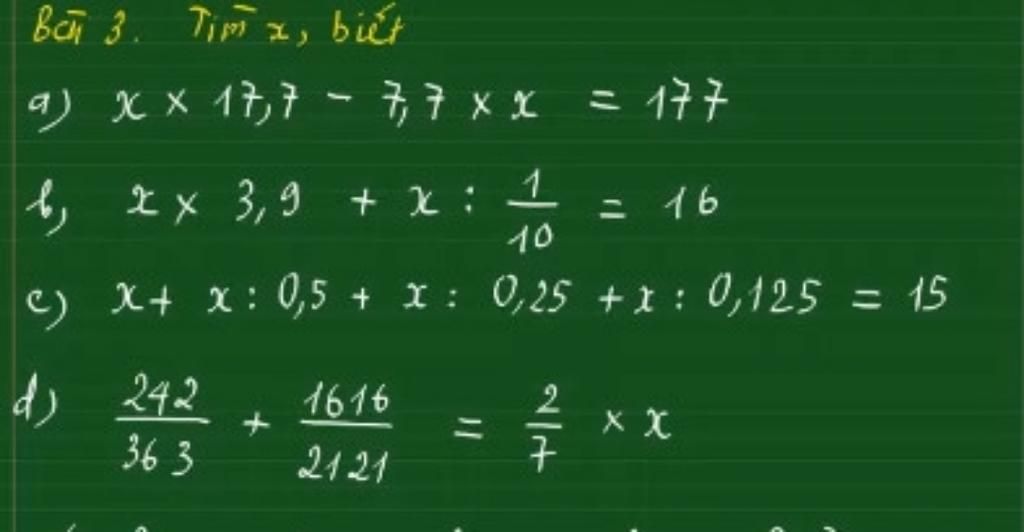 Bài 3. Tìm x, biết
a) x × 17,7 - 7,7 × x = 177
b, x × 3,9 + x : 1/10 = 16
c) x + x : 0,5 + x : 0,25 + x : 0,125 = 15
d) 242/363 + 1616/2121 = 2/7 × x